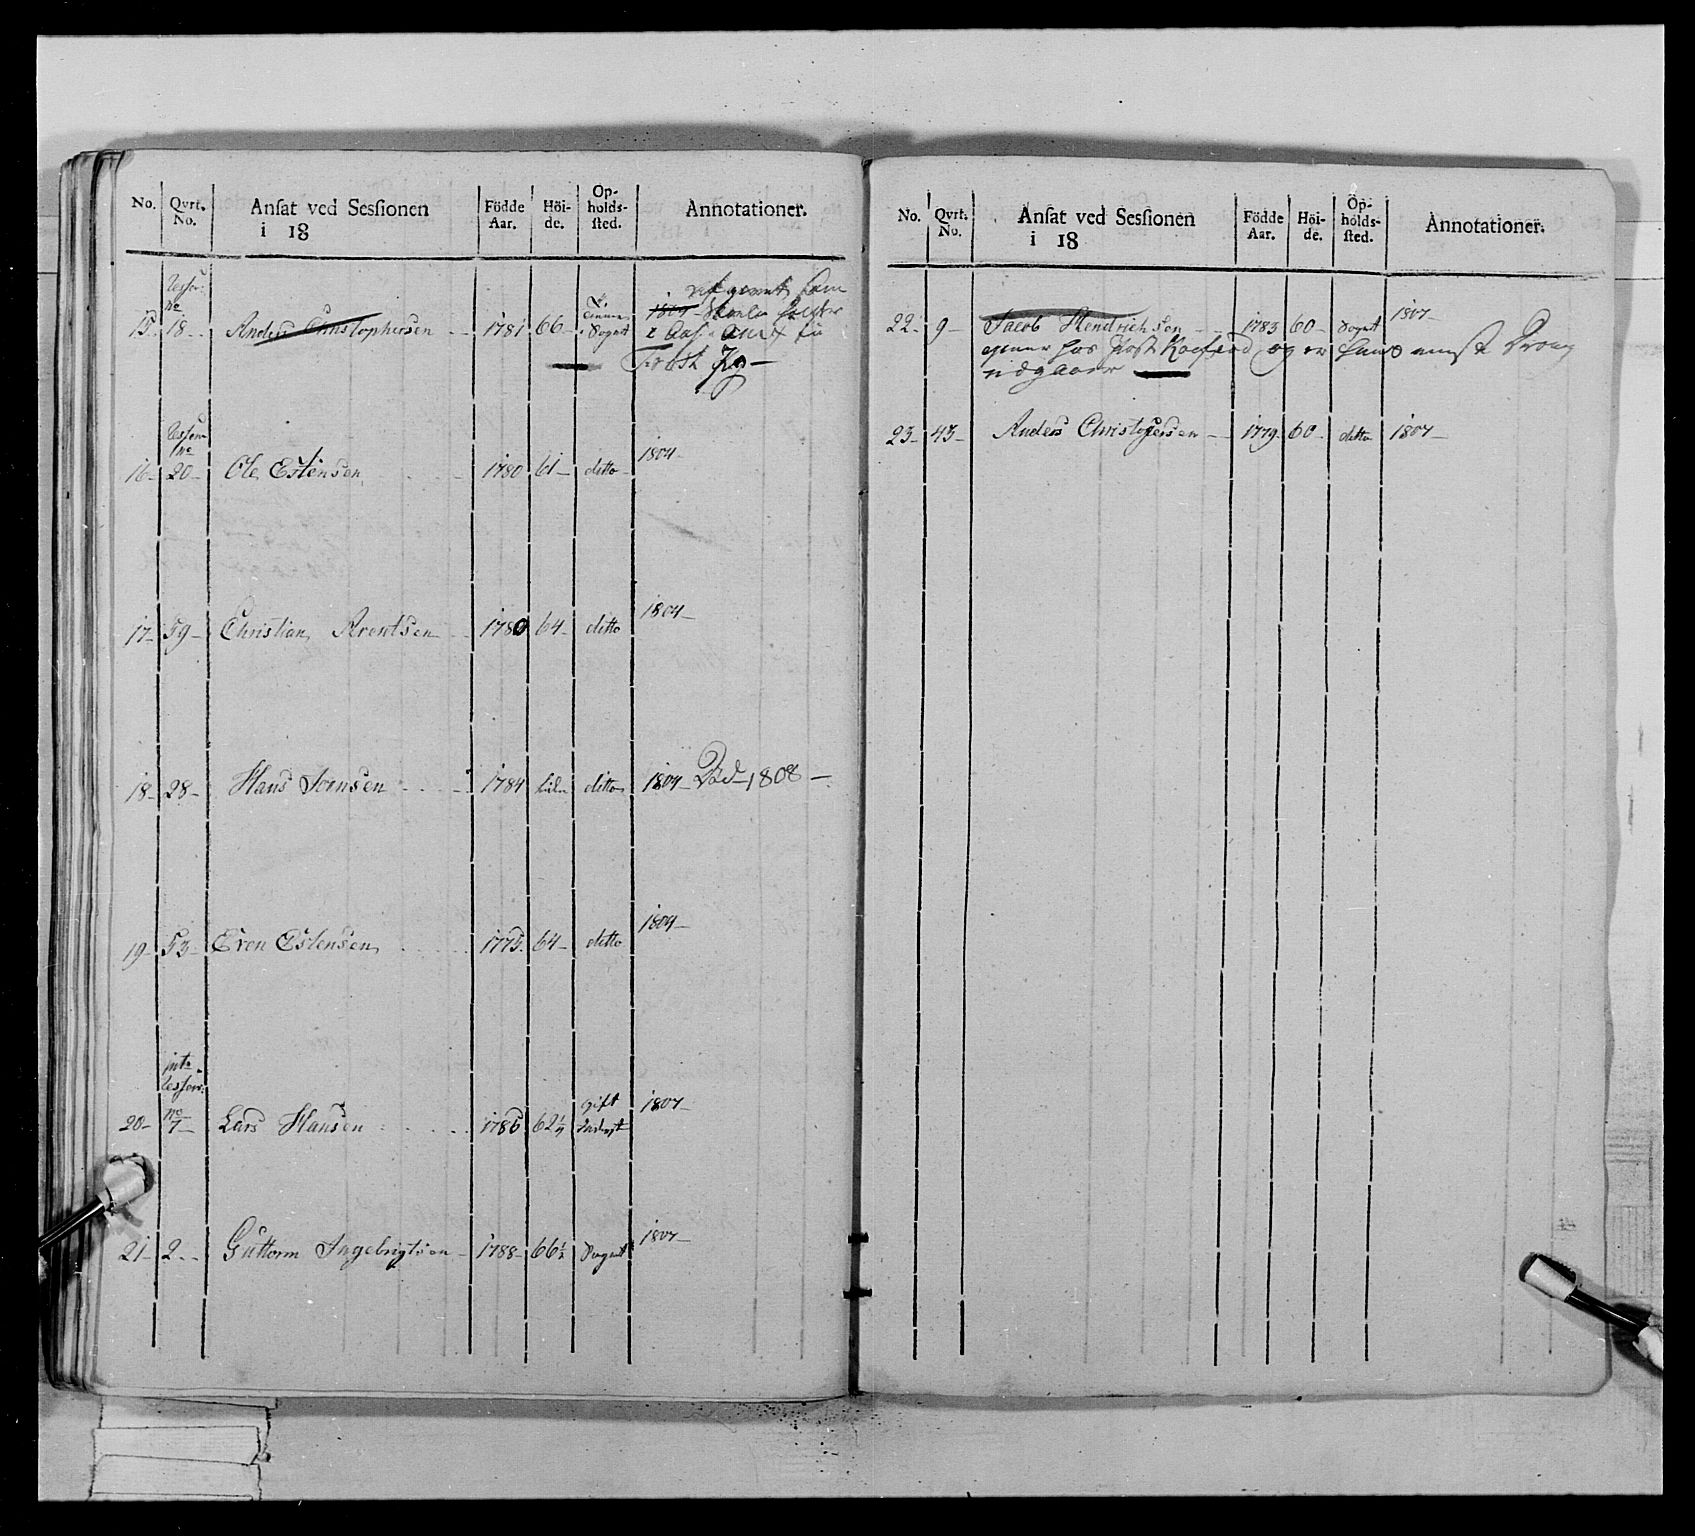 No. Qvrt. No. Anſat ved Sesſionen i 18 Födde Aar. Höide. Opholdsſted. Annotationer.
15. 18 Anders Christophersen 1781 66 Sognet 1804
No
16 20 Ole Estensen 1780 61 ditto 1804
17 59 Christian Arentsen 1780 64 ditto 1804
18 28 Hans Joensen 1784 ditto 1804 Död 1808
19 53 Even Estensen 1775 64 ditto 1804
No
gift
20 7 Lars Hansen 1786 62 1/4 1807
21 2 Guttorm Ingebrigtsen 1788 66 1/2 Sognet 1807
No. Qvrt. No. Anſat ved Sesſionen i 18 Födde Aar. Höide. Opholdsſted. Annotationer.
22 9 Jacob Hendrichsen 1783 60 Sognet 1807
tiener hos og er hans eneste Dreng
udgaaer
23 43 Anders Christophersen 1779 60 ditto 1807